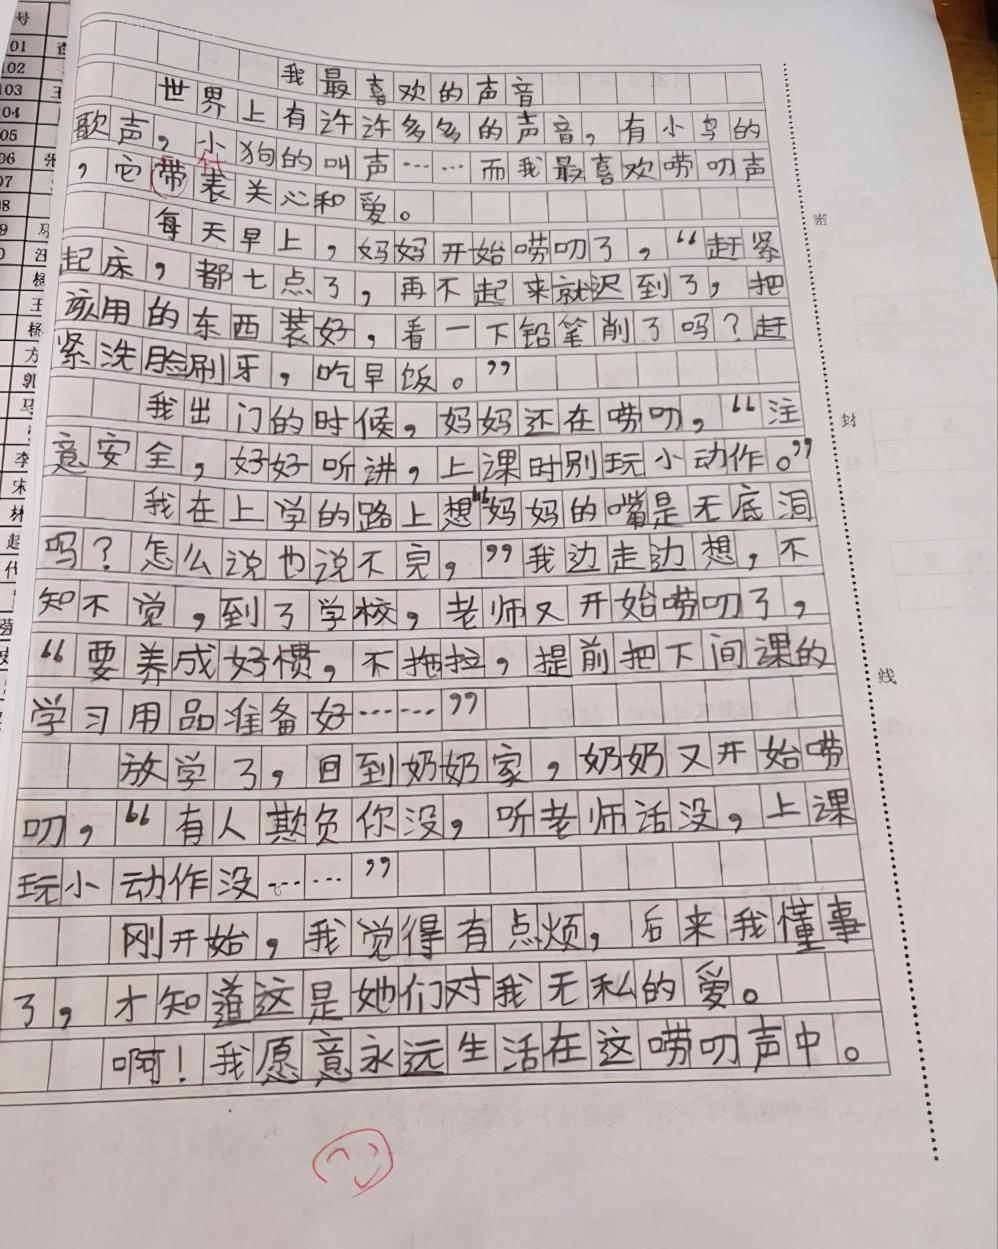 我最喜欢的声音
世界上有许许多多的声音，有小鸟的
歌声，小狗的叫声……而我最喜欢唠叨声
，它带表关心和爱。
代
每天早上，妈妈开始唠叨了，“赶紧
起床，都七点了，再不起来就迟到了，把
该用的东西装好，看一下铅笔削了吗？赶
紧洗脸刷牙，吃早饭。”
我出门的时候，妈妈还在唠叨，“注
意安全，好好听讲，上课时别玩小动作。”
我在上学的路上想“妈妈的嘴是无底洞
吗？怎么说也说不完，”我边走边想，不
知不觉，到了学校，老师又开始唠叨了，
“要养成好惯，不拖拉，提前把下间课的
学习用品准备好……”
放学了，回到奶奶家，奶奶又开始唠
叨，“有人欺负你没，听老师话没，上课
玩小动作没……”
刚开始，我觉得有点烦，后来我懂事
了，才知道这是她们对我无私的爱。
啊！我愿意永远生活在这唠叨声中。
密
封
线
号
01
02
103
04
05
06 张
07
08
9 马
0 汪
杨
王
杨
方
郭
马
李
宋
林
赵
代